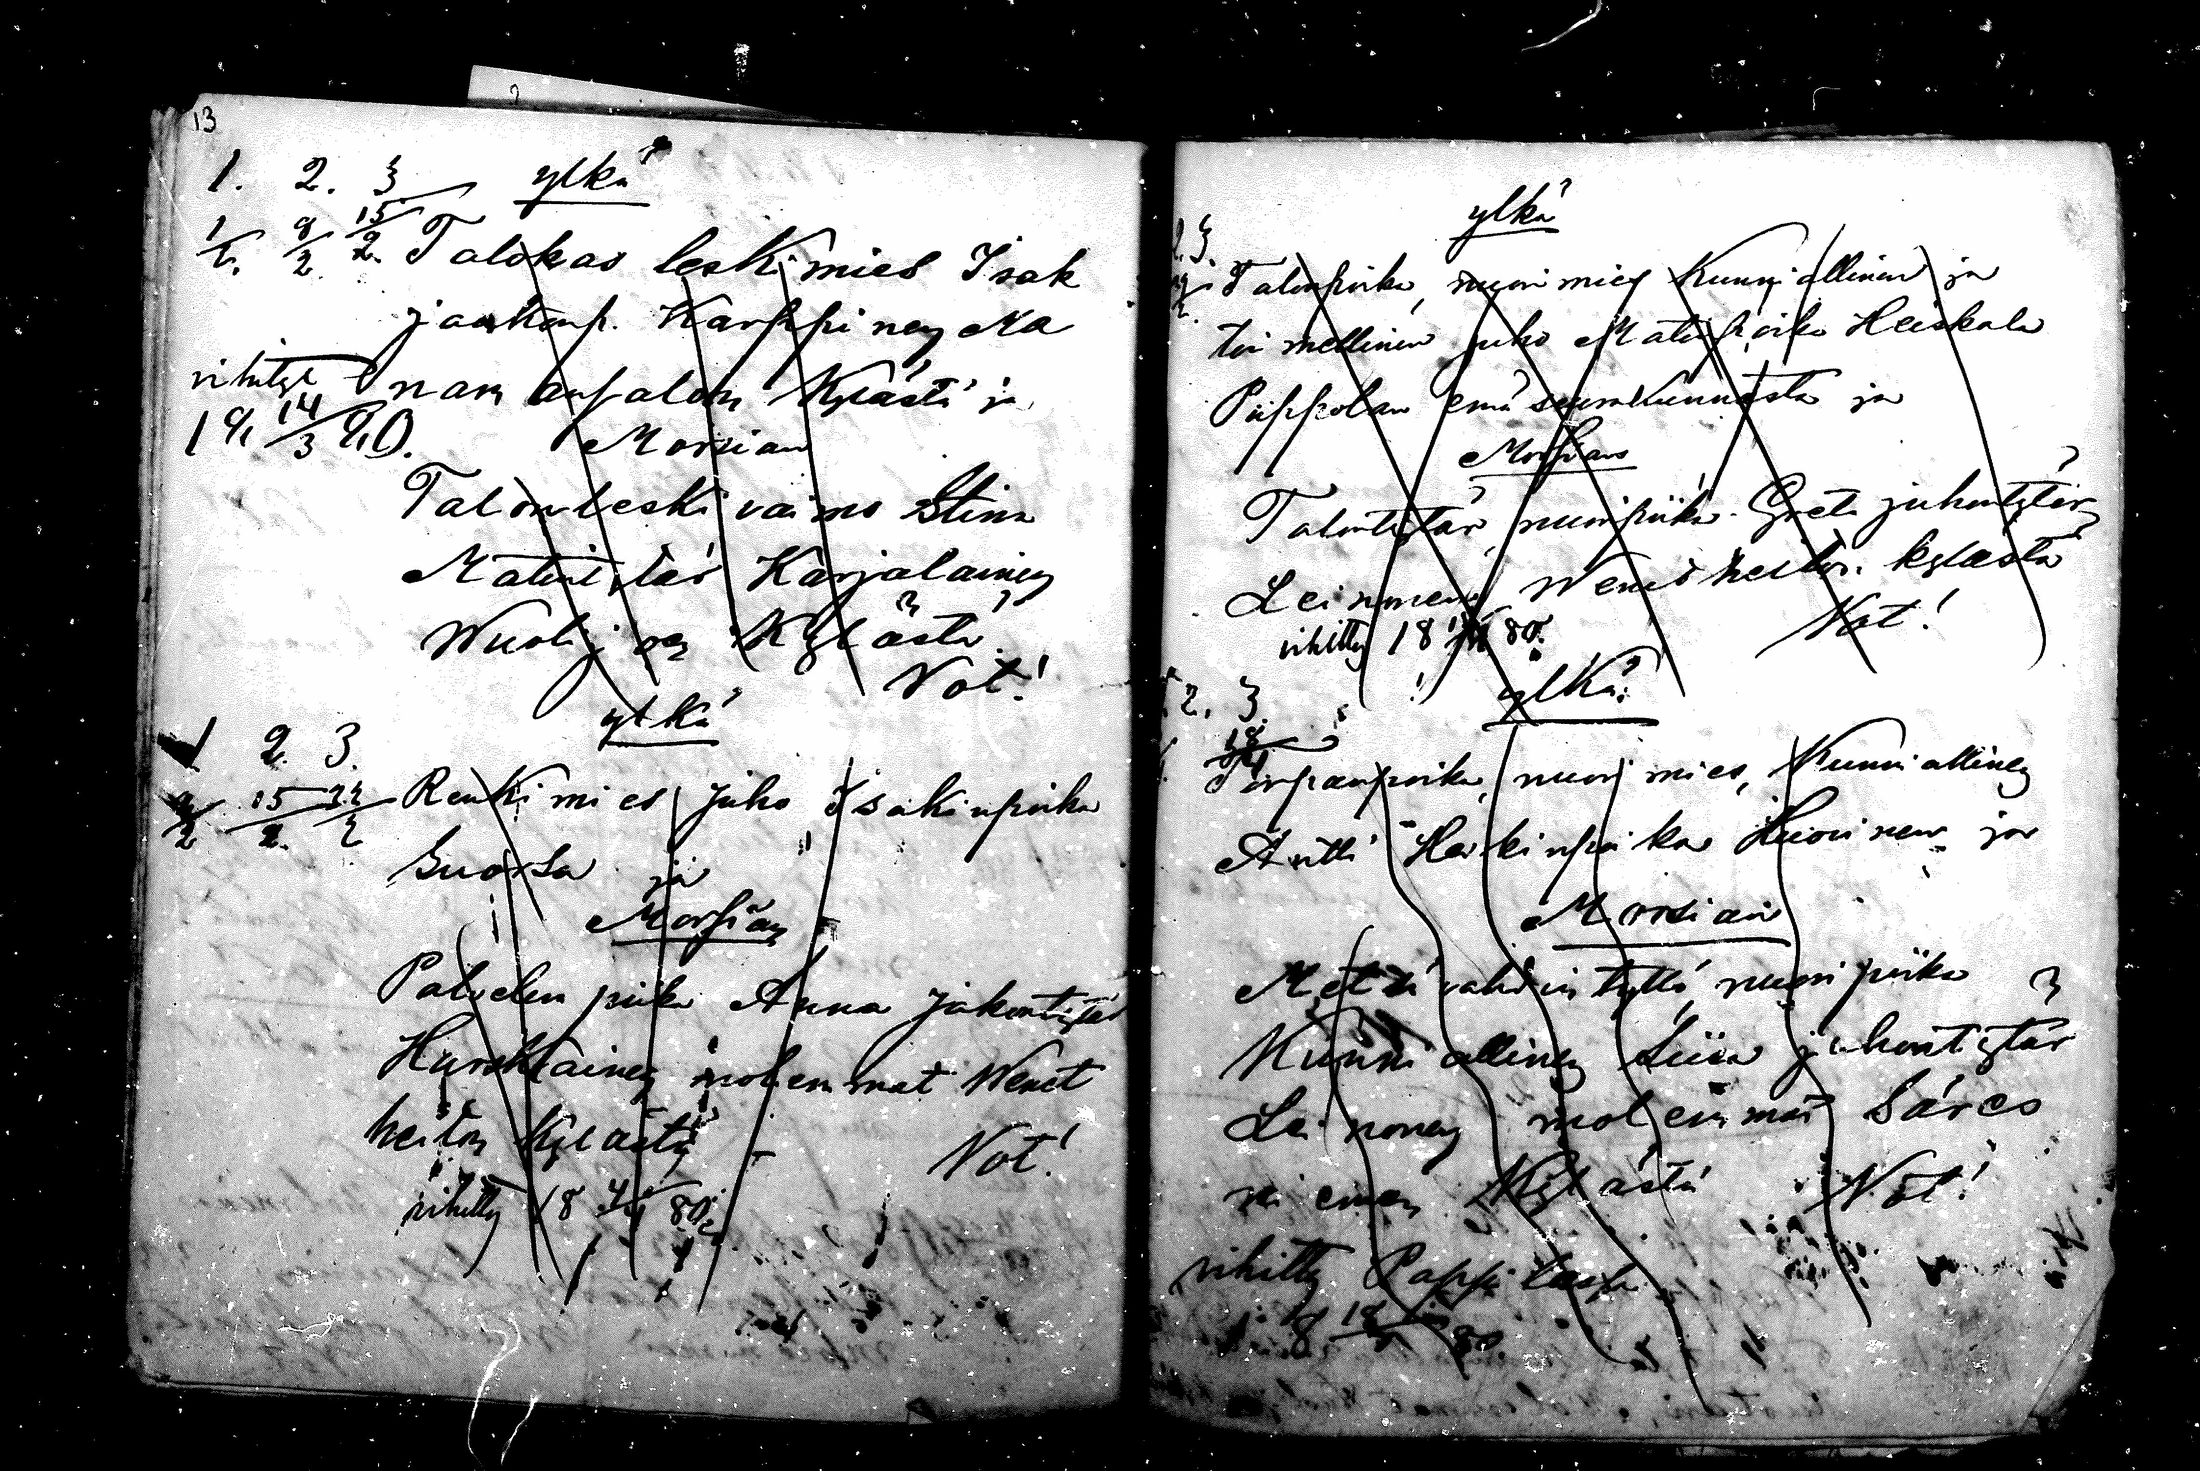 13
1. 2. 3 ylkä
1/2. 8/2 15/2. Talokas leskimies Isak
jaakonp. Karppinen Ma
vihityt nan kylästä ja
18 14/3 80. Morsian
Talonleskivaimo Stina
Matintytär Karjalainen
Wuolijoen Kylästä
Not!
ylkä
1 2. 3.
8/2 15/2. 22/2 Renkimies Juho Isakinpoika
Suorsa ja
Morsian
Palvelus piika Anna Jakontytär
molemmat Wenet
heiton Kylästä Not!
vihitty 18 80.
ylkä
2. 3.
Talonpoika, nuorimies Kunniallinen ja
toimellinen Juho Matinpoika Heiskala
Piippolan emäseurakunnasta ja
Morsian
Talontytär, nuoripiika Greta juhontytär
Leinonen, Wenet heiton kylästä
vihitty 18 80. Not!
ylkä:
2. 3.
18
Torpanpoika, nuori mies, Kunniallinen
Antti Heikinpoika Huovinen ja
Morsian
Metsävahdin tyttö, nuoripiika
Kunniallinen Liisa juhontytär
Leinonen molemmat Säres
niemen Kylästä Not!
vihitty Pappilassa
18 18 80.